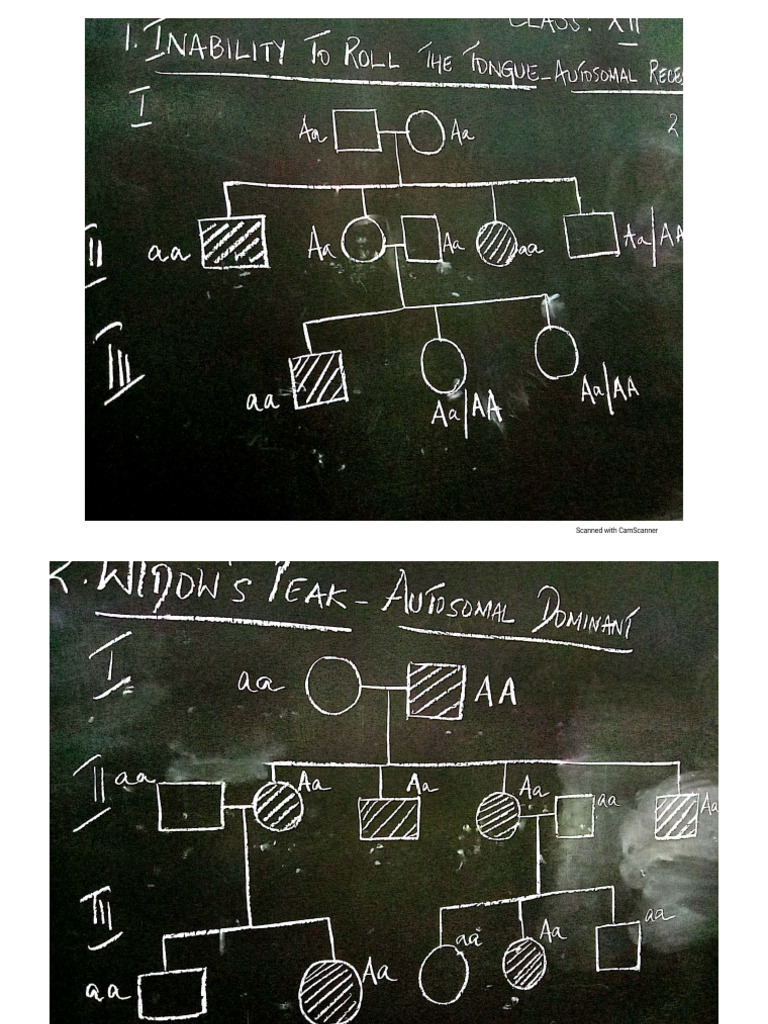 CLASS: XII
1. INABILITY TO ROLL THE TONGUE - AUTOSOMAL RECES
I
2
Aa Aa
II
aa Aa Aa aa Aa|AA
III
aa Aa|AA Aa|AA
Scanned with CamScanner
2. WIDOW'S PEAK - AUTOSOMAL DOMINANT
I
aa AA
II
aa Aa Aa Aa aa Aa
III
aa Aa aa Aa aa